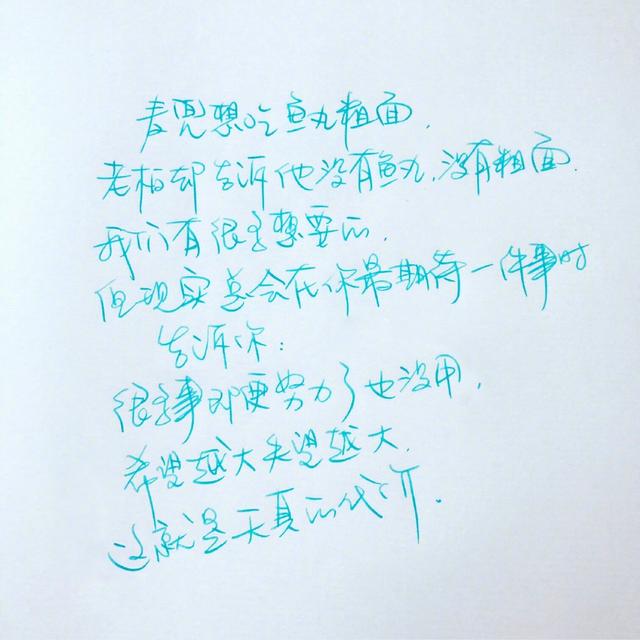 麦兜想吃鱼丸粗面,
老板却告诉他没有鱼丸,没有粗面.
我们有很多想要的,
但现实总会在你最期待一件事时
告诉你:
很多事即便努力了也没用,
希望越大失望越大,
这就是天真的代价.